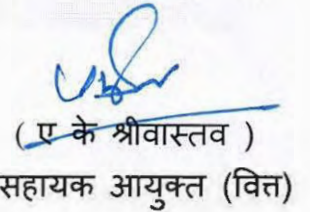 ( ए के श्रीवास्तव )
सहायक आयुक्त (वित्त)